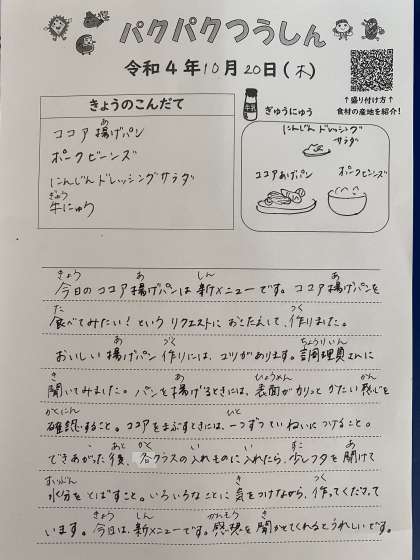 パクパクつうしん
令和4年10月20日(木)
↑盛り付け方↑
食材の産地を紹介!
きょうのこんだて
ココア揚げパン
あ
ポークビーンズ
にんじんドレッシングサラダ
ぎゅう
牛にゅう
牛乳
ぎゅうにゅう
にんじんドレッシング
サラダ
ココアあげパン
ポークビーンズ
きょう あ しん あ
今日のココア揚げパンは新メニューです。ココア揚げパンを
た つく
食べてみたい!というリクエストにおこたえして、作りました。
あ づく ちょうりいん
おいしい揚げパン作りには、コツがあります。調理員さんに
き あ ひょうめん かん
聞いてみました。パンを揚げるときには、表面がカリッとかたい感じを
かくにん ひと
確認すること。ココアをまぶすときには、一つずつていねいにつけること。
あと かく い い すこ あ
できあがった後、各クラスの入れものに入れたら、少しフタを開けて
すいぶん き つく
水分をとばすこと。いろいろなことに気をつけながら、作ってくださって
きょう しん かんそう き
います。今日は、新メニューです。感想を聞かせてくれるとうれしいです。